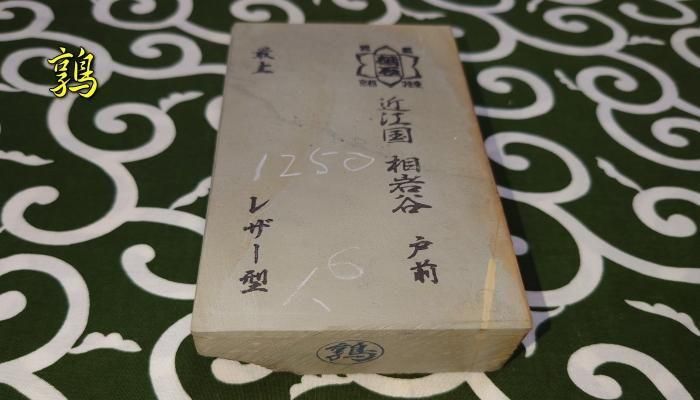 鶉
最上
近江国 相岩谷 戸前
1250
レザー型
16
鶉